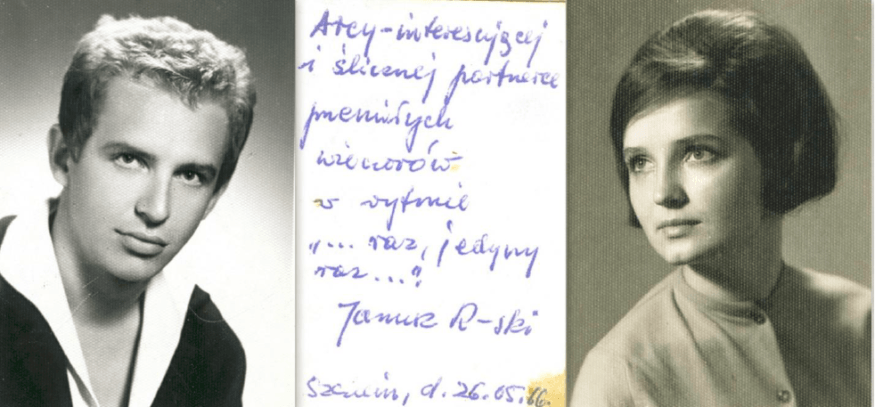 Arcy-interesującej
i ślicznej partnerce
przemiłych
wieczorów
w rytmie
"... raz, jedyny
raz..."
Janusz R-ski
Szczecin, d. 26.05.66.